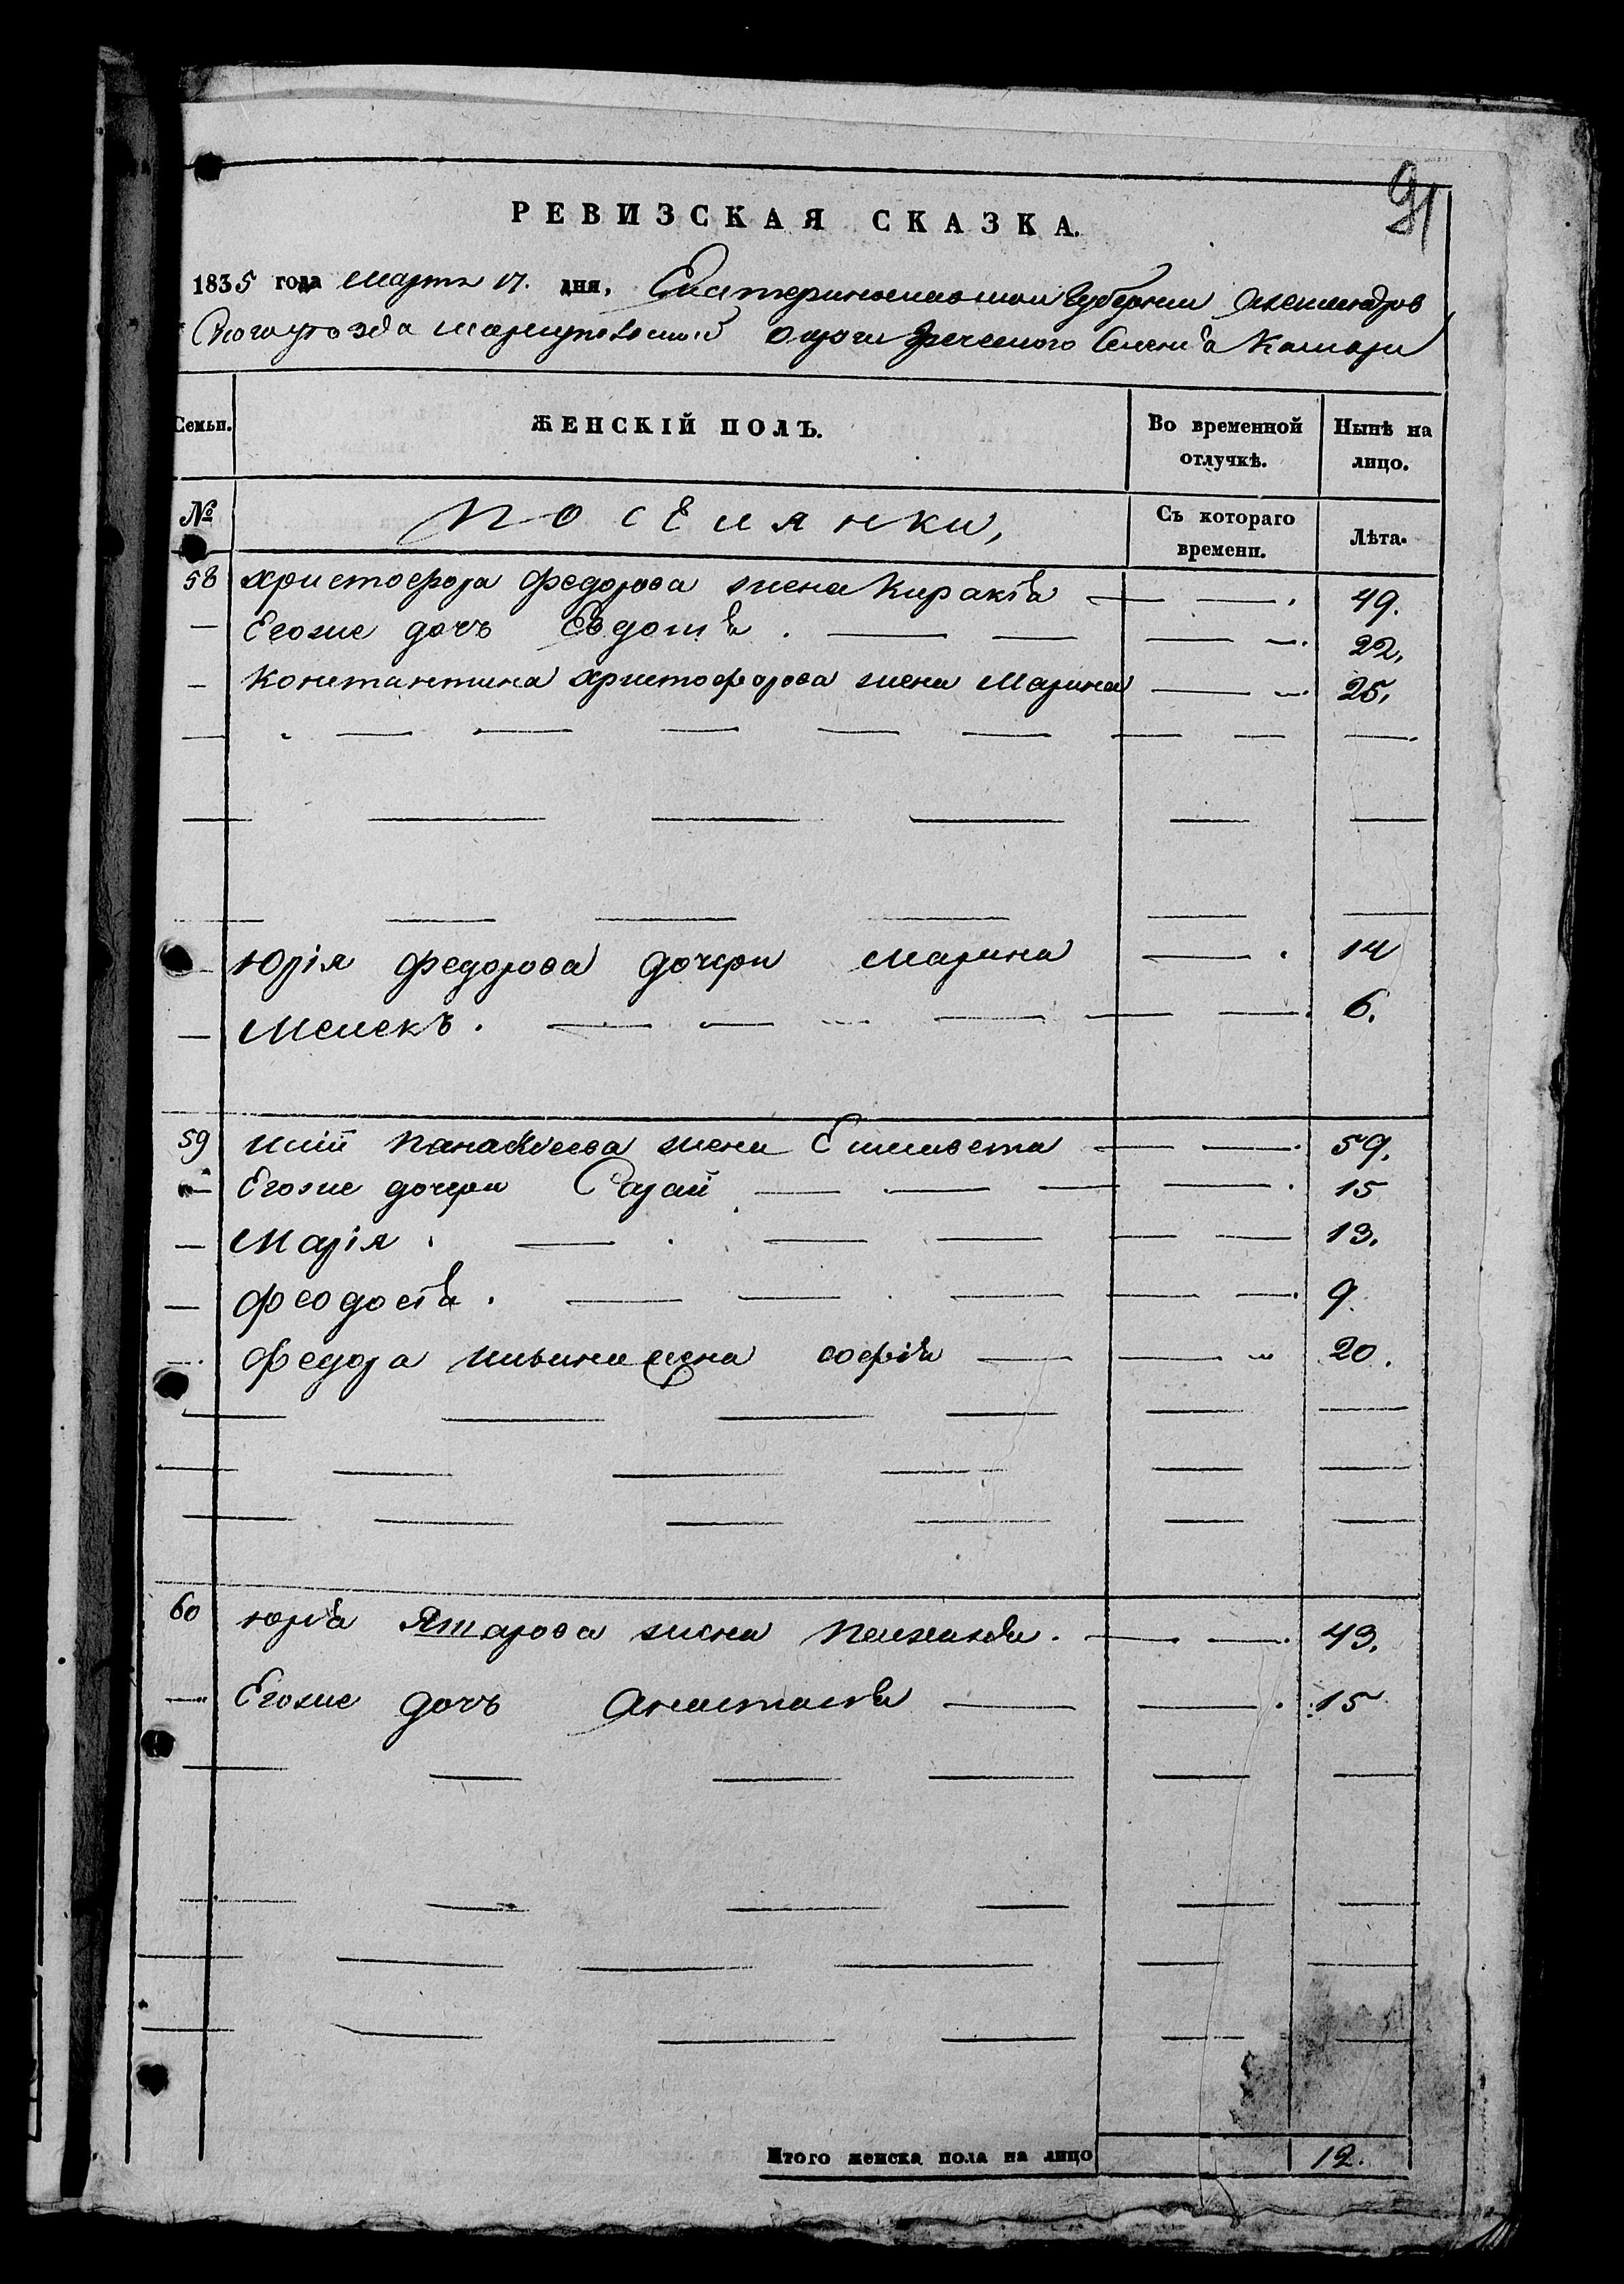 91
РЕВИЗСКАЯ СКАЗКА.
1835 года марта 17. дня, Екатеринославской Губернии Александров
Скогоуѣзда мариупольской округи греческого Селенія Камары
Семьи. ЖЕНСКІЙ ПОЛЪ. Во временной отлучкѣ. Нынѣ на лицо.
№ ПОСЕЛЯНКИ, Съ котораго времени. Лѣта.
58 христофора федорова жена Киракія — — . 49.
— Егоже дочь Евдокія . — — — — . 22.
— Константина христофорова жена Марина — — . 25.
— Юрія федорова дочери марина — . 14
— Мелекъ . — — — — — — . 6.
59 илій панакіеева жена Елисавета — — . 59.
— Егоже дочери Сарай — — — — . 15
— Марія . — . — — — — 13.
— феодосія . — — . — — — . 9.
— федора ильина жена софія — — 20.
60 юрія Ятарова жена — — . 43.
— Егоже дочь Анастасія — — . 15
Итого женска пола на лицо 12.